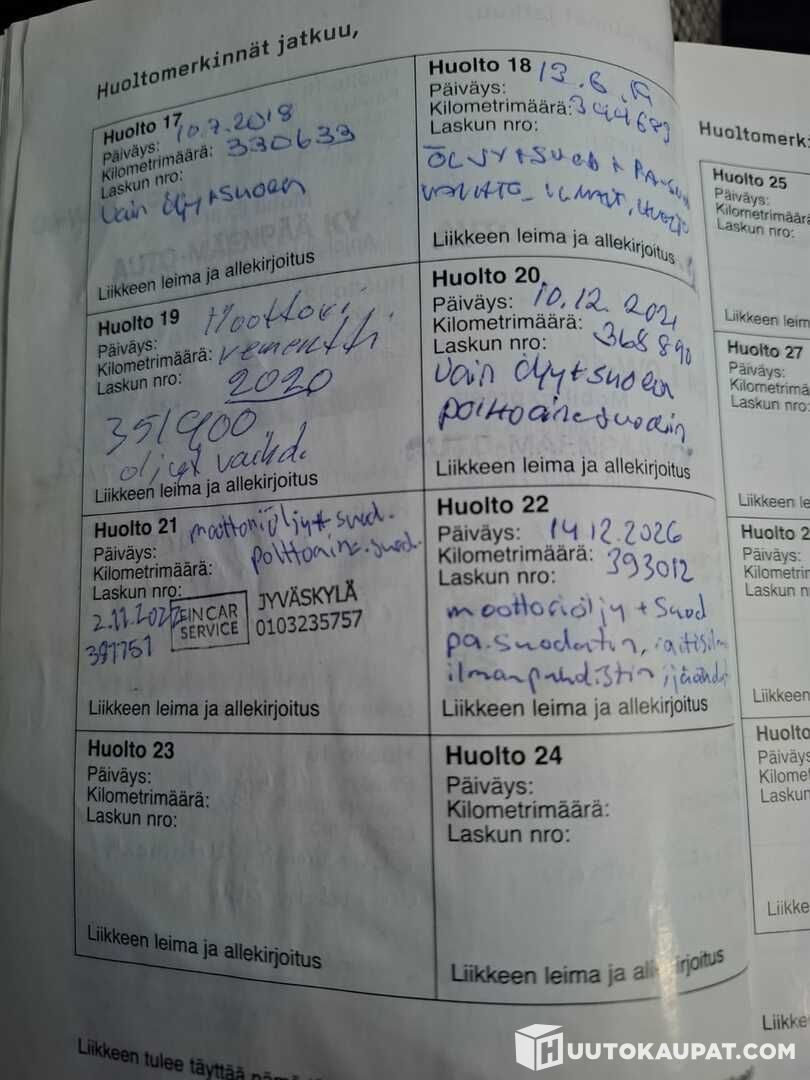 Huoltomerkinnät jatkuu,
Huolto 17
Päiväys: 10.7.2018
Kilometrimäärä: 330633
Laskun nro:
Vain öljyt+suoen
Liikkeen leima ja allekirjoitus
Huolto 18
Päiväys: 13.6.19
Kilometrimäärä: 344689
Laskun nro:
Liikkeen leima ja allekirjoitus
Huolto 19
Päiväys: Moottori
Kilometrimäärä: remontti
Laskun nro: 2020
351900
öljyt vaihd.
Liikkeen leima ja allekirjoitus
Huolto 20
Päiväys: 10.12.2021
Kilometrimäärä: 368890
Laskun nro:
Vain öljyt+suoen
polttoainesuodin
Liikkeen leima ja allekirjoitus
Huolto 21 moottoriöljy+suod.
Päiväys: polttoaine.suod.
Kilometrimäärä:
Laskun nro:
2.11.2022
EINCAR SERVICE
JYVÄSKYLÄ
0103235757
Liikkeen leima ja allekirjoitus
Huolto 22
Päiväys: 14.12.2026
Kilometrimäärä: 393012
Laskun nro:
moottoriöljy + suod
pa.suodatin, raitisilm
ilmanpuhdistin, jäähd
Liikkeen leima ja allekirjoitus
Huolto 23
Päiväys:
Kilometrimäärä:
Laskun nro:
Liikkeen leima ja allekirjoitus
Huolto 24
Päiväys:
Kilometrimäärä:
Laskun nro:
Liikkeen leima ja allekirjoitus
Liikkeen tulee täyttää
Huoltomerki
Huolto 25
Päiväys:
Kilometrimäärä
Laskun nro:
Liikkeen leim
Huolto 27
Päiväys:
Kilometrimä
Laskun nro:
Liikkeen le
Huolto 2
Päiväys:
Kilometrim
Laskun nr
Liikkeen
Huolto
Päiväys
Kilome
Laskun
Liikke
Liikke
HUUTOKAUPAT.COM